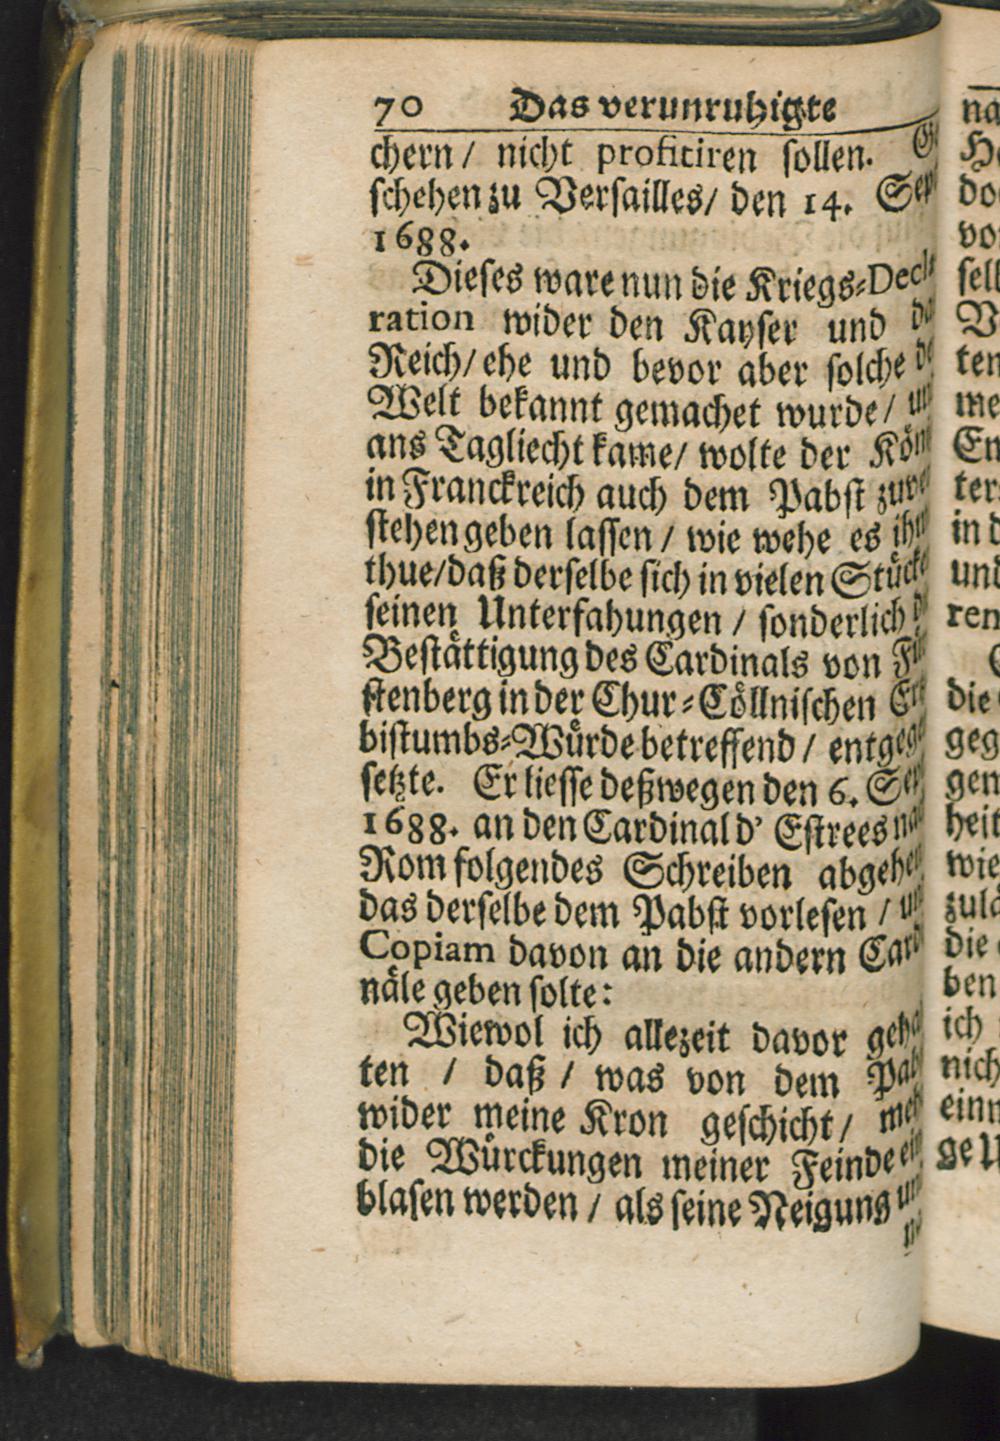 70 Das verunruhigte
chern / nicht profitiren sollen.
schehen zu Versailles / den 14. Sep
1688.
Dieses ware nun die Kriegs-Decla
ration wider den Kayser und
Reich / ehe und bevor aber solche
Welt bekannt gemachet wurde /
ans Tagliecht kame / wolte der Kön
in Franckreich auch dem Pabst zuve
stehen geben lassen / wie wehe es ihm
thue / daß derselbe sich in vielen Stücke
seinen Unterfahungen / sonderlich
Bestättigung des Cardinals von Für
stenberg in der Chur-Cöllnischen Ertz
bistumbs-Würde betreffend / entgege
setzte. Er liesse deßwegen den 6. Sep
1688. an den Cardinal d' Estrees na
Rom folgendes Schreiben abgehen
das derselbe dem Pabst vorlesen / un
Copiam davon an die andern Card
näle geben solte:
Wiewol ich allezeit davor geha
ten / daß / was von dem Pab
wider meine Kron geschicht / meh
die Würckungen meiner Feinde ein
blasen werden / als seine Neigung un
na
He
do
vo
sell
V
ten
me
En
ter
in d
und
ren
die
geg
gen
heit
wie
zulä
die
ben
ich
nich
einn
ge U